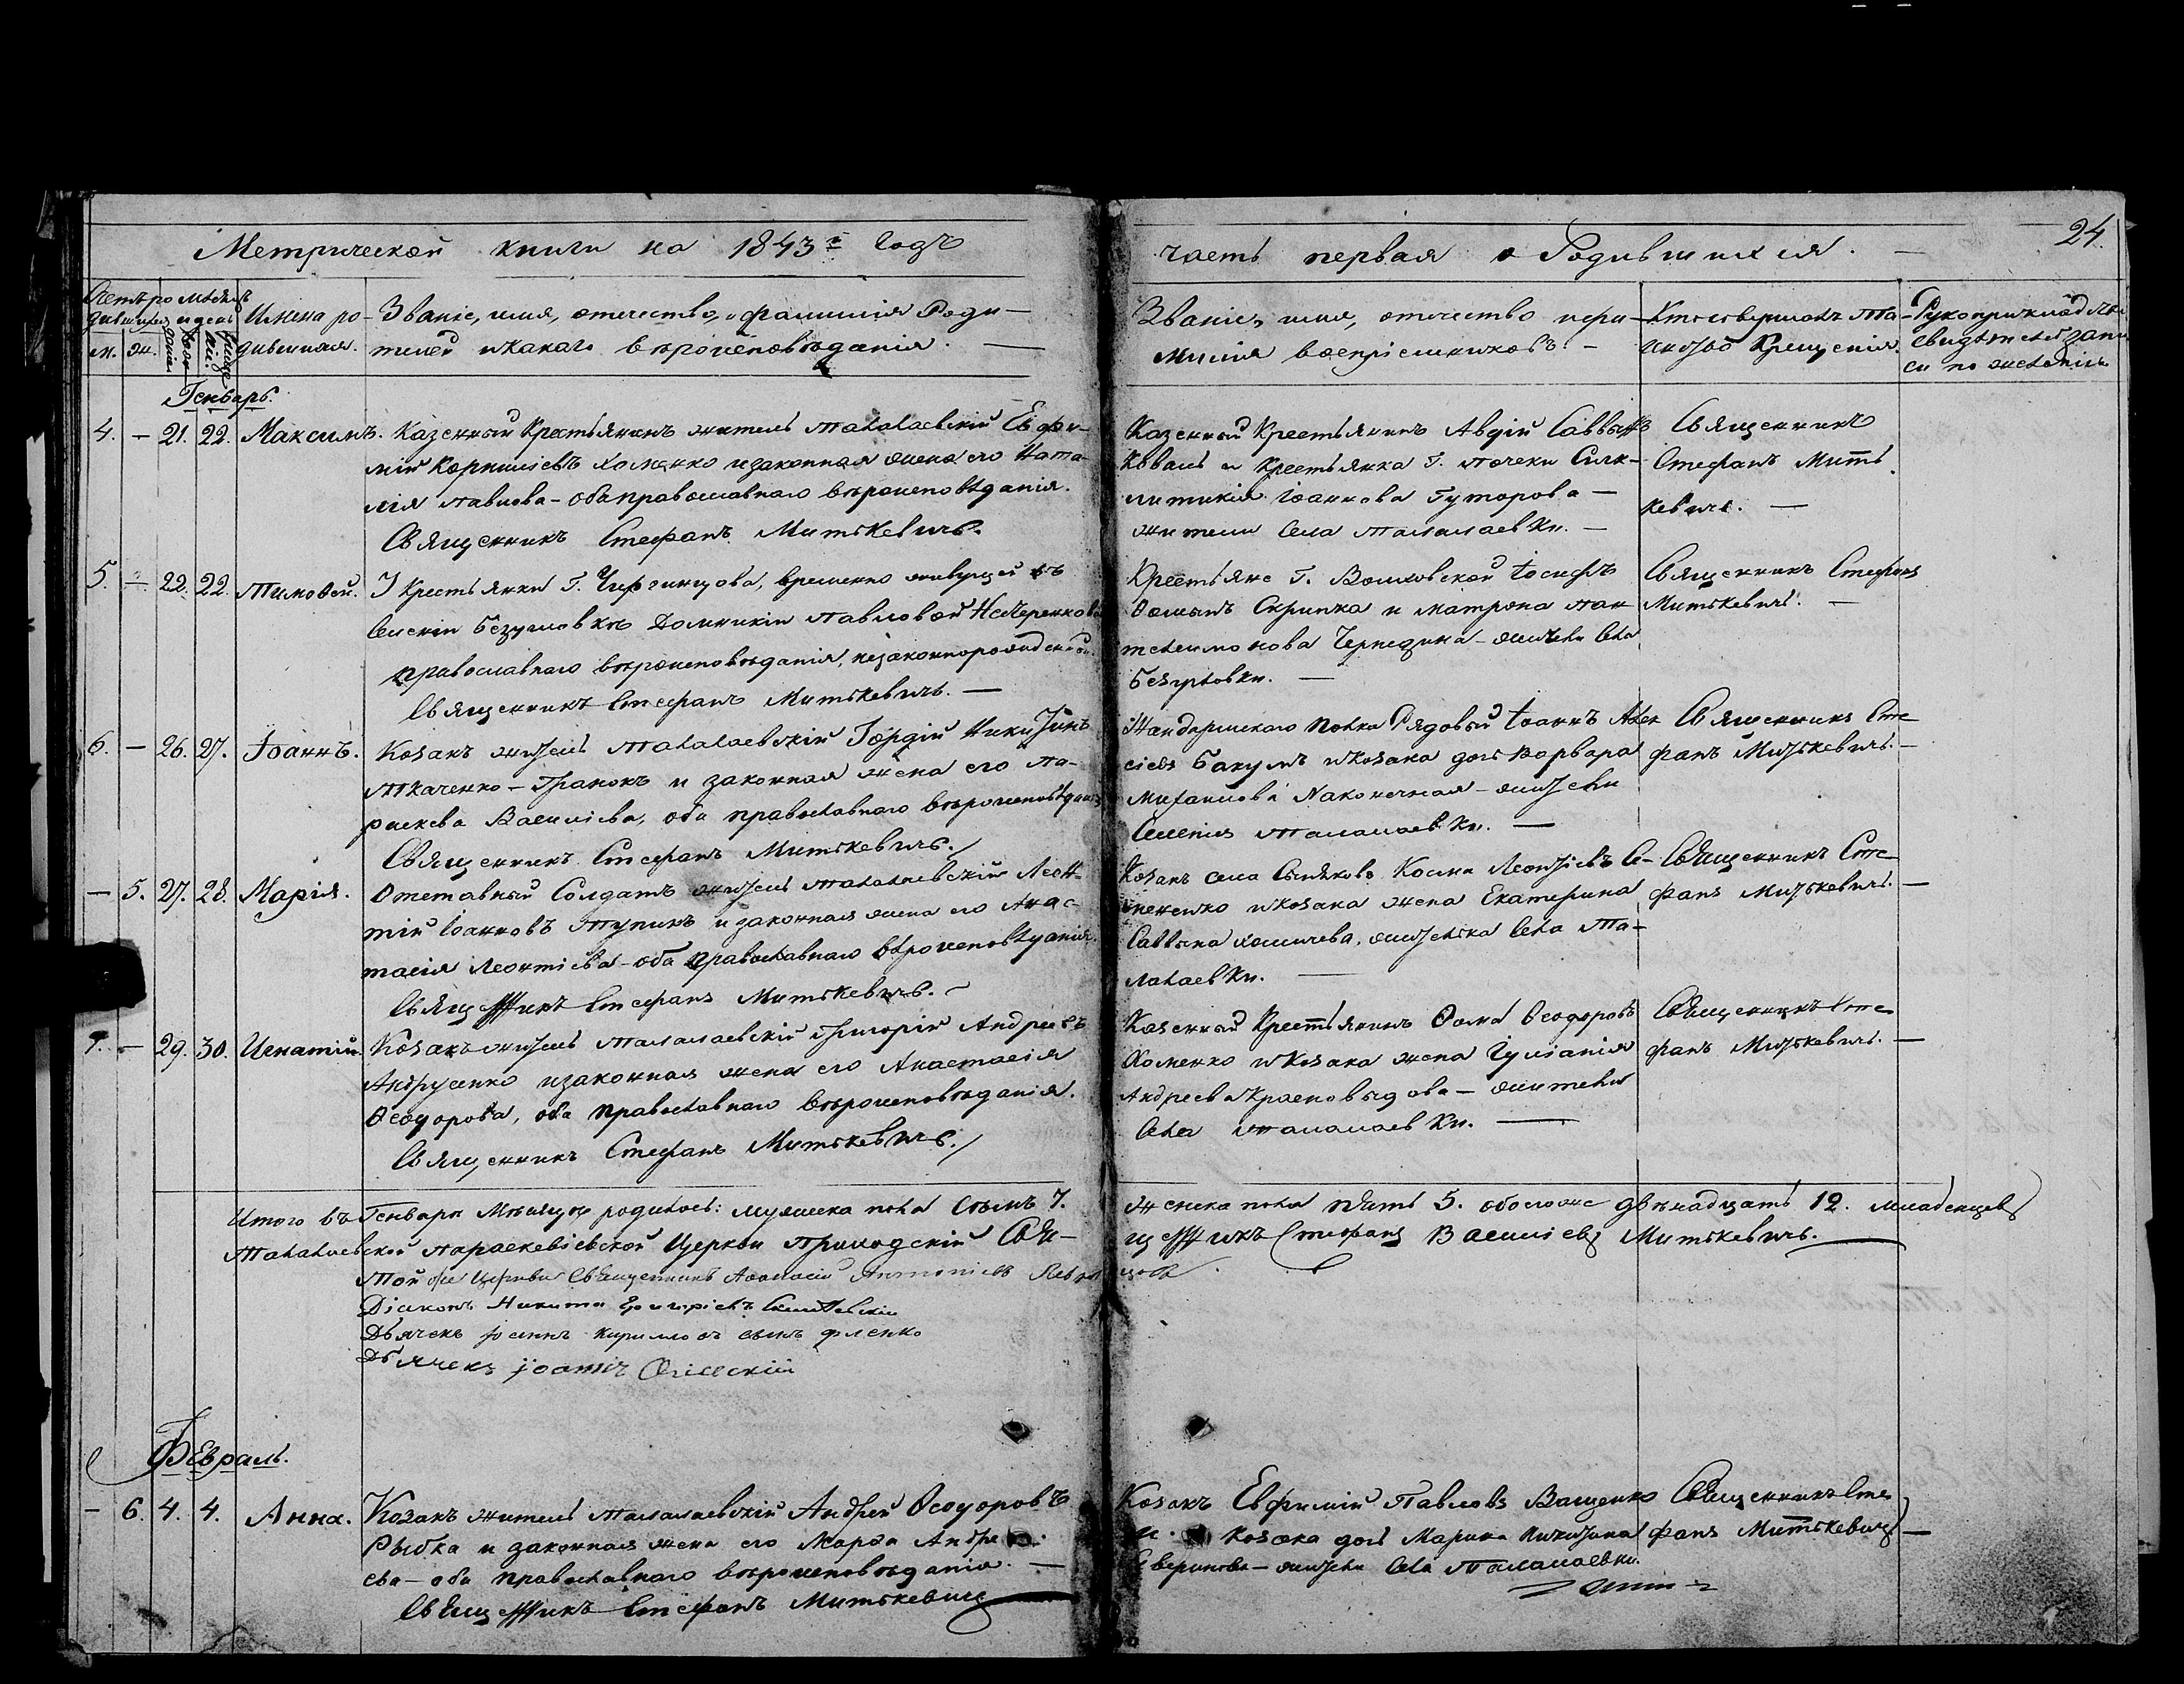 Метрической книги на 1843й годъ
часть первая о Родившихся. —
24.
Счетъ ро
дившихся
м. ж.
мѣсяцъ
и день
рож
денія
креще
нія.
Имена ро-
дившихся.
Званіе, имя, отечество, и фамилія Роди-
телей и какаго вѣроисповѣданія. —
Званіе, имя, отечество и фа-
милія воспріемниковъ. —
Кто совершалъ та-
инство Крещенія.
Рукоприкладство
свидѣтелей запи
си по желанію
Генварь.
4. — 21. 22. Максимъ.
Казенный Крестьянинъ житель талалаевскій Евфи-
мій Корниліевъ Хоменко и законная жена его Ната-
лія павлова - оба православнаго вѣроисповѣданія.
Священникъ Стефанъ Митькевичь.
Казенный Крестьянинъ Авдій Саввинъ
Коваль и Крестьянка Г. Почеки Синк-
литикія Іоаннова Гуторова —
жители Села талалаевки. —
Священникъ
Стефанъ Мить
кевичь. —
5. — 22. 22. Тимоѳей.
У Крестьянки Г. временно живущей въ
Селеніи Безугловкѣ Домникіи Павловой Нестеренковой
православнаго вѣроисповѣданія, незаконнорожденной.
Священникъ Стефанъ Митькевичь. —
Крестьяне Г. Волховской Іосифъ
Ѳоминъ Скрипка и Матрона пан
телеимонова - жители Села
Безугловки. —
Священникъ Стефанъ
Митькевичь. —
6. — 26. 27. Іоаннъ.
Козакъ житель талалаевскій Гордій Никитинъ
Ткаченко - Гранокъ и законная жена его па-
раскева Василіева, оба православнаго вѣроисповѣданія
Священникъ Стефанъ Митькевичь.
Жандармскаго полка Рядовый Іоаннъ Алек
сіевъ Бакумъ и Козака дочь Варвара
Михаилова Наконечная - жители
Селенія талалаевки. —
Священникъ Сте
фанъ Митькевичь. —
— 5. 27. 28. Марія.
Отставный Солдатъ житель талалаевскій Леон-
тій Іоанновъ Тупикъ и законная жена его Анас-
тасія Леонтіева - оба православнаго вѣроисповѣданія.
Священникъ Стефанъ Митькевичь. —
Козакъ села Косма Леонтіевъ Се-
и козака жена Екатерина
Саввина жителька Села Та-
лалаевки. —
Священникъ Сте
фанъ Митькевичь. —
7. — 29. 30. Игнатій.
Козакъ житель талалаевскій Григорій Андреевъ
Андрусенко и законная жена его Анастасія
Ѳеодорова, оба православнаго вѣроисповѣданія.
Священникъ Стефанъ Митькевичь.
Казенный Крестьянинъ Ѳома Ѳеодоровъ
Хоменко и Козака жена Іуліанія
Андреева — жители
Села талалаевки. —
Священникъ Сте
фанъ Митькевичь. —
Итого въ Генварѣ Мѣсяцѣ родилось: мужеска пола Седмь 7.
женска пола пять 5. обоего же двѣнадцать 12. младенцевъ
Талалаевской параскевіевской Церкви Приходскій Свя-
щенникъ Стефанъ Василіевъ Митькевичь.
Той же Церкви Священникъ Аѳанасій Антоніевъ
Діаконъ Никита Григоріевъ
Дьячекъ Іоаннъ Кирилловъ сынъ
Дьячекъ Іоаннъ
Февраль.
— 6. 4. 4. Анна.
Козакъ житель талалаевскій Андрей Ѳеодоровъ
Рыбка и законная жена его Марѳа Андре
ева - оба православнаго вѣроисповѣданія. —
Священникъ Стефанъ Митькевичь
Козакъ Евфимій Павловъ Ващенко
и козака дочь Марина Никитина
- жители Села Талалаевки.
Священникъ Сте
фанъ Митькевичь —